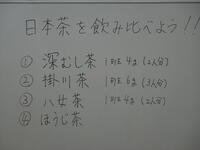 日本茶を飲み比べよう!!
① 深むし茶 1班4g(2人分)
② 掛川茶 1班6g(3人分)
③ 八女茶 1班4g(2人分)
④ ほうじ茶